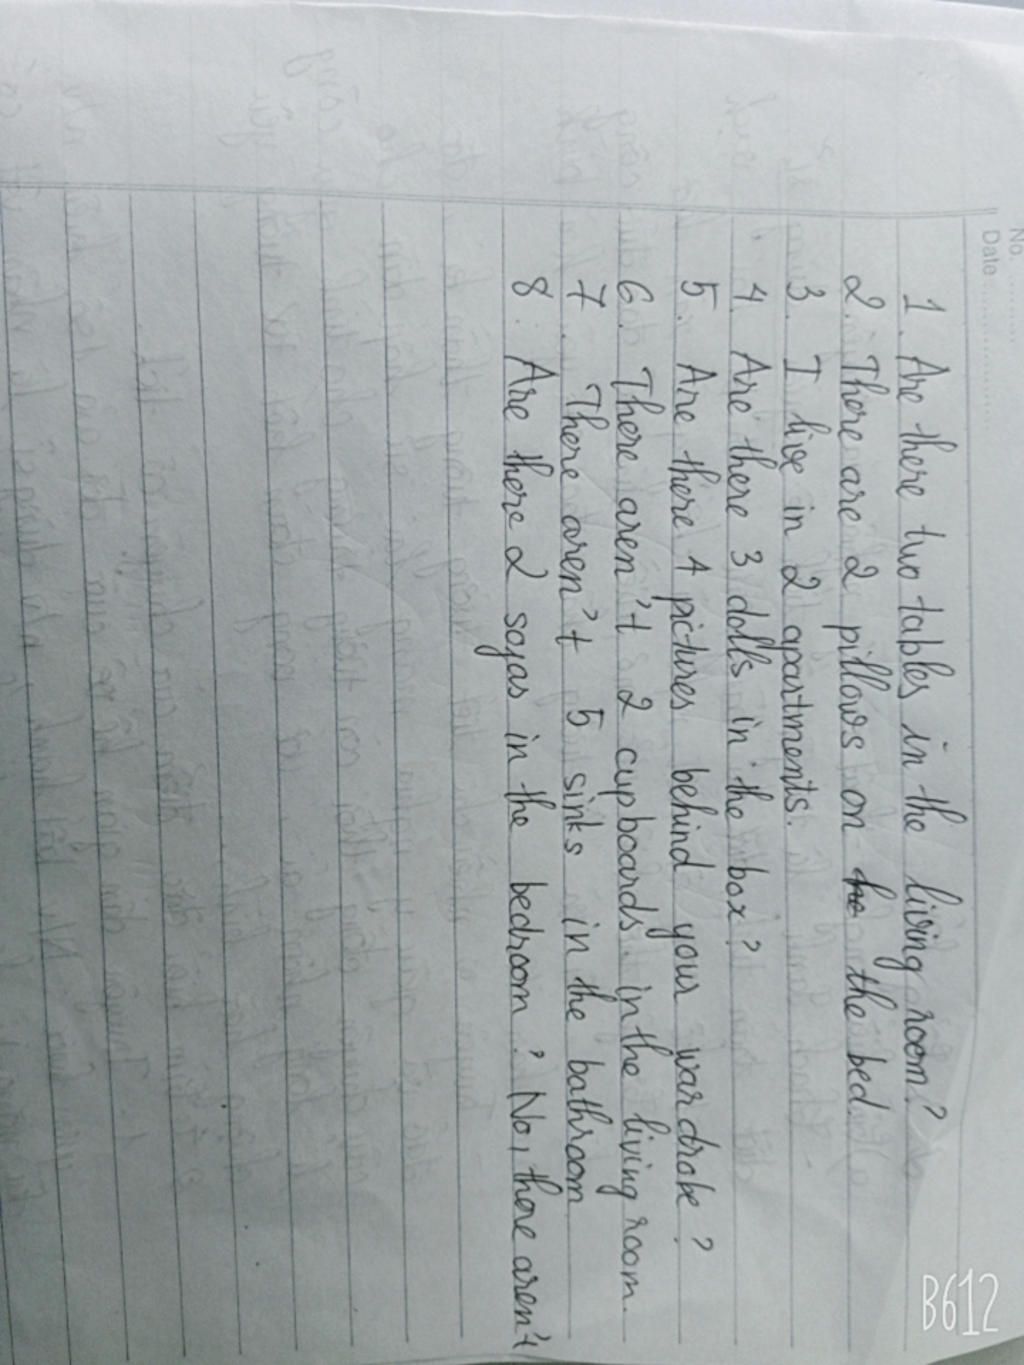 No.
Date
1. Are there two tables in the living room?
2. There are 2 pillows on he the bed.
3. I live in 2 apartments.
4. Are there 3 dolls in the box?
5. Are there 4 pictures behind your wardrobe?
6. There aren't 2 cupboards in the living room.
7. There aren't 5 sinks in the bathroom
8. Are there 2 sofas in the bedroom? No, there aren't
B612